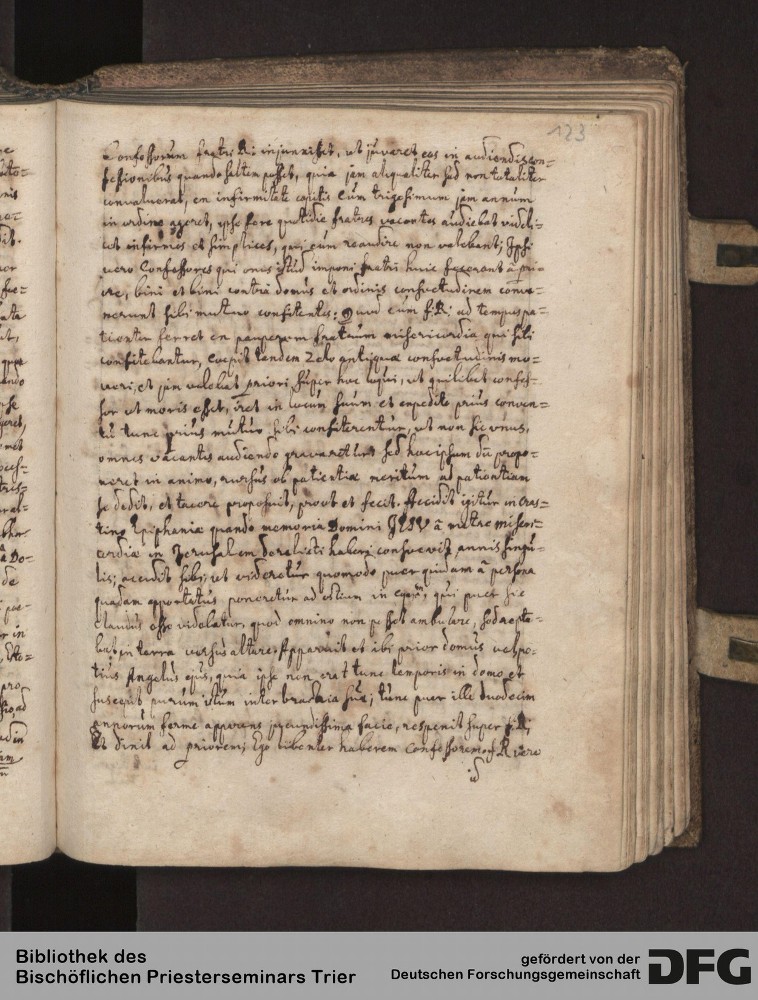 123
Confessorum fratri Ri injunxisset, ut juvaret eos in audiendis con=
fessionibus quando saltem posset, quia jam aliqualiter sed non totaliter
convaluerat, ex infirmitate capitis cum trigesimum jam annum
in ordine ageret, ipse fere quotidie fratres vacantes audiebat videli=
cet infirmos et simplices, qui eum reaudire non valebant; Ipsi
vero Confessores qui onus istud imponi fratri huic fecerant a pri=
ore, bini et bini contra domus et ordinis consuetudinem conve=
nerunt sibi mutuo confitentes: Quod cum f. Ri ad tempus pa=
tienter ferret ex pauperum fratrum misericordia qui sibi
confitebantur, coepit tandem Zelo antiquae consuetudinis mo=
veri, et jam volebat priori super hoc loqui, ut quilibet confes=
sor ut moris esset, iret in locum suum et expedito prius conven=
tu tunc prius mutuo sibi confiterentur, ut non sic unus,
omnes vacantes audiendo gravaretur: sed hoc ipsum dū propo=
neret in animo, rursus ob patientiae meritum ad patientiam
se dedit, et tacere proposuit, prout et fecit. Accidit igitur in cras=
tino Epiphaniae quando memoria Domini JESU a matre miseri=
cordiae in Jerusalem derelicti haberi consuevit annis singu=
lis; accidit sibi, ut videretur quomodo puer quidam a persona
quadam apportatus poneretur ad ostium in; qui puer sic
claudus esse videbatur, quod omnino non posset ambulare, sed repta=
bat in terra versus altare. Apparuit et ibi prior domus vel po=
tius Angelus ejus, quia ipse non erat tunc temporis in domo, et
suscepit puerum istum inter brachia sua; tunc puer ille duodecim
annorum ferme apparens jucundissima facie, respexit super f. Ri,
Et dixit ad priorem; Ego libenter haberem Confessorem f. R vero
id
Bibliothek des
Bischöflichen Priesterseminars Trier
gefördert von der
Deutschen Forschungsgemeinschaft
DFG